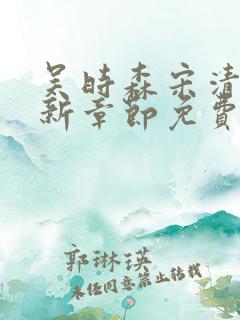 吴时森宋清
新章节免费
郭琳瑛
未经同意禁止转载